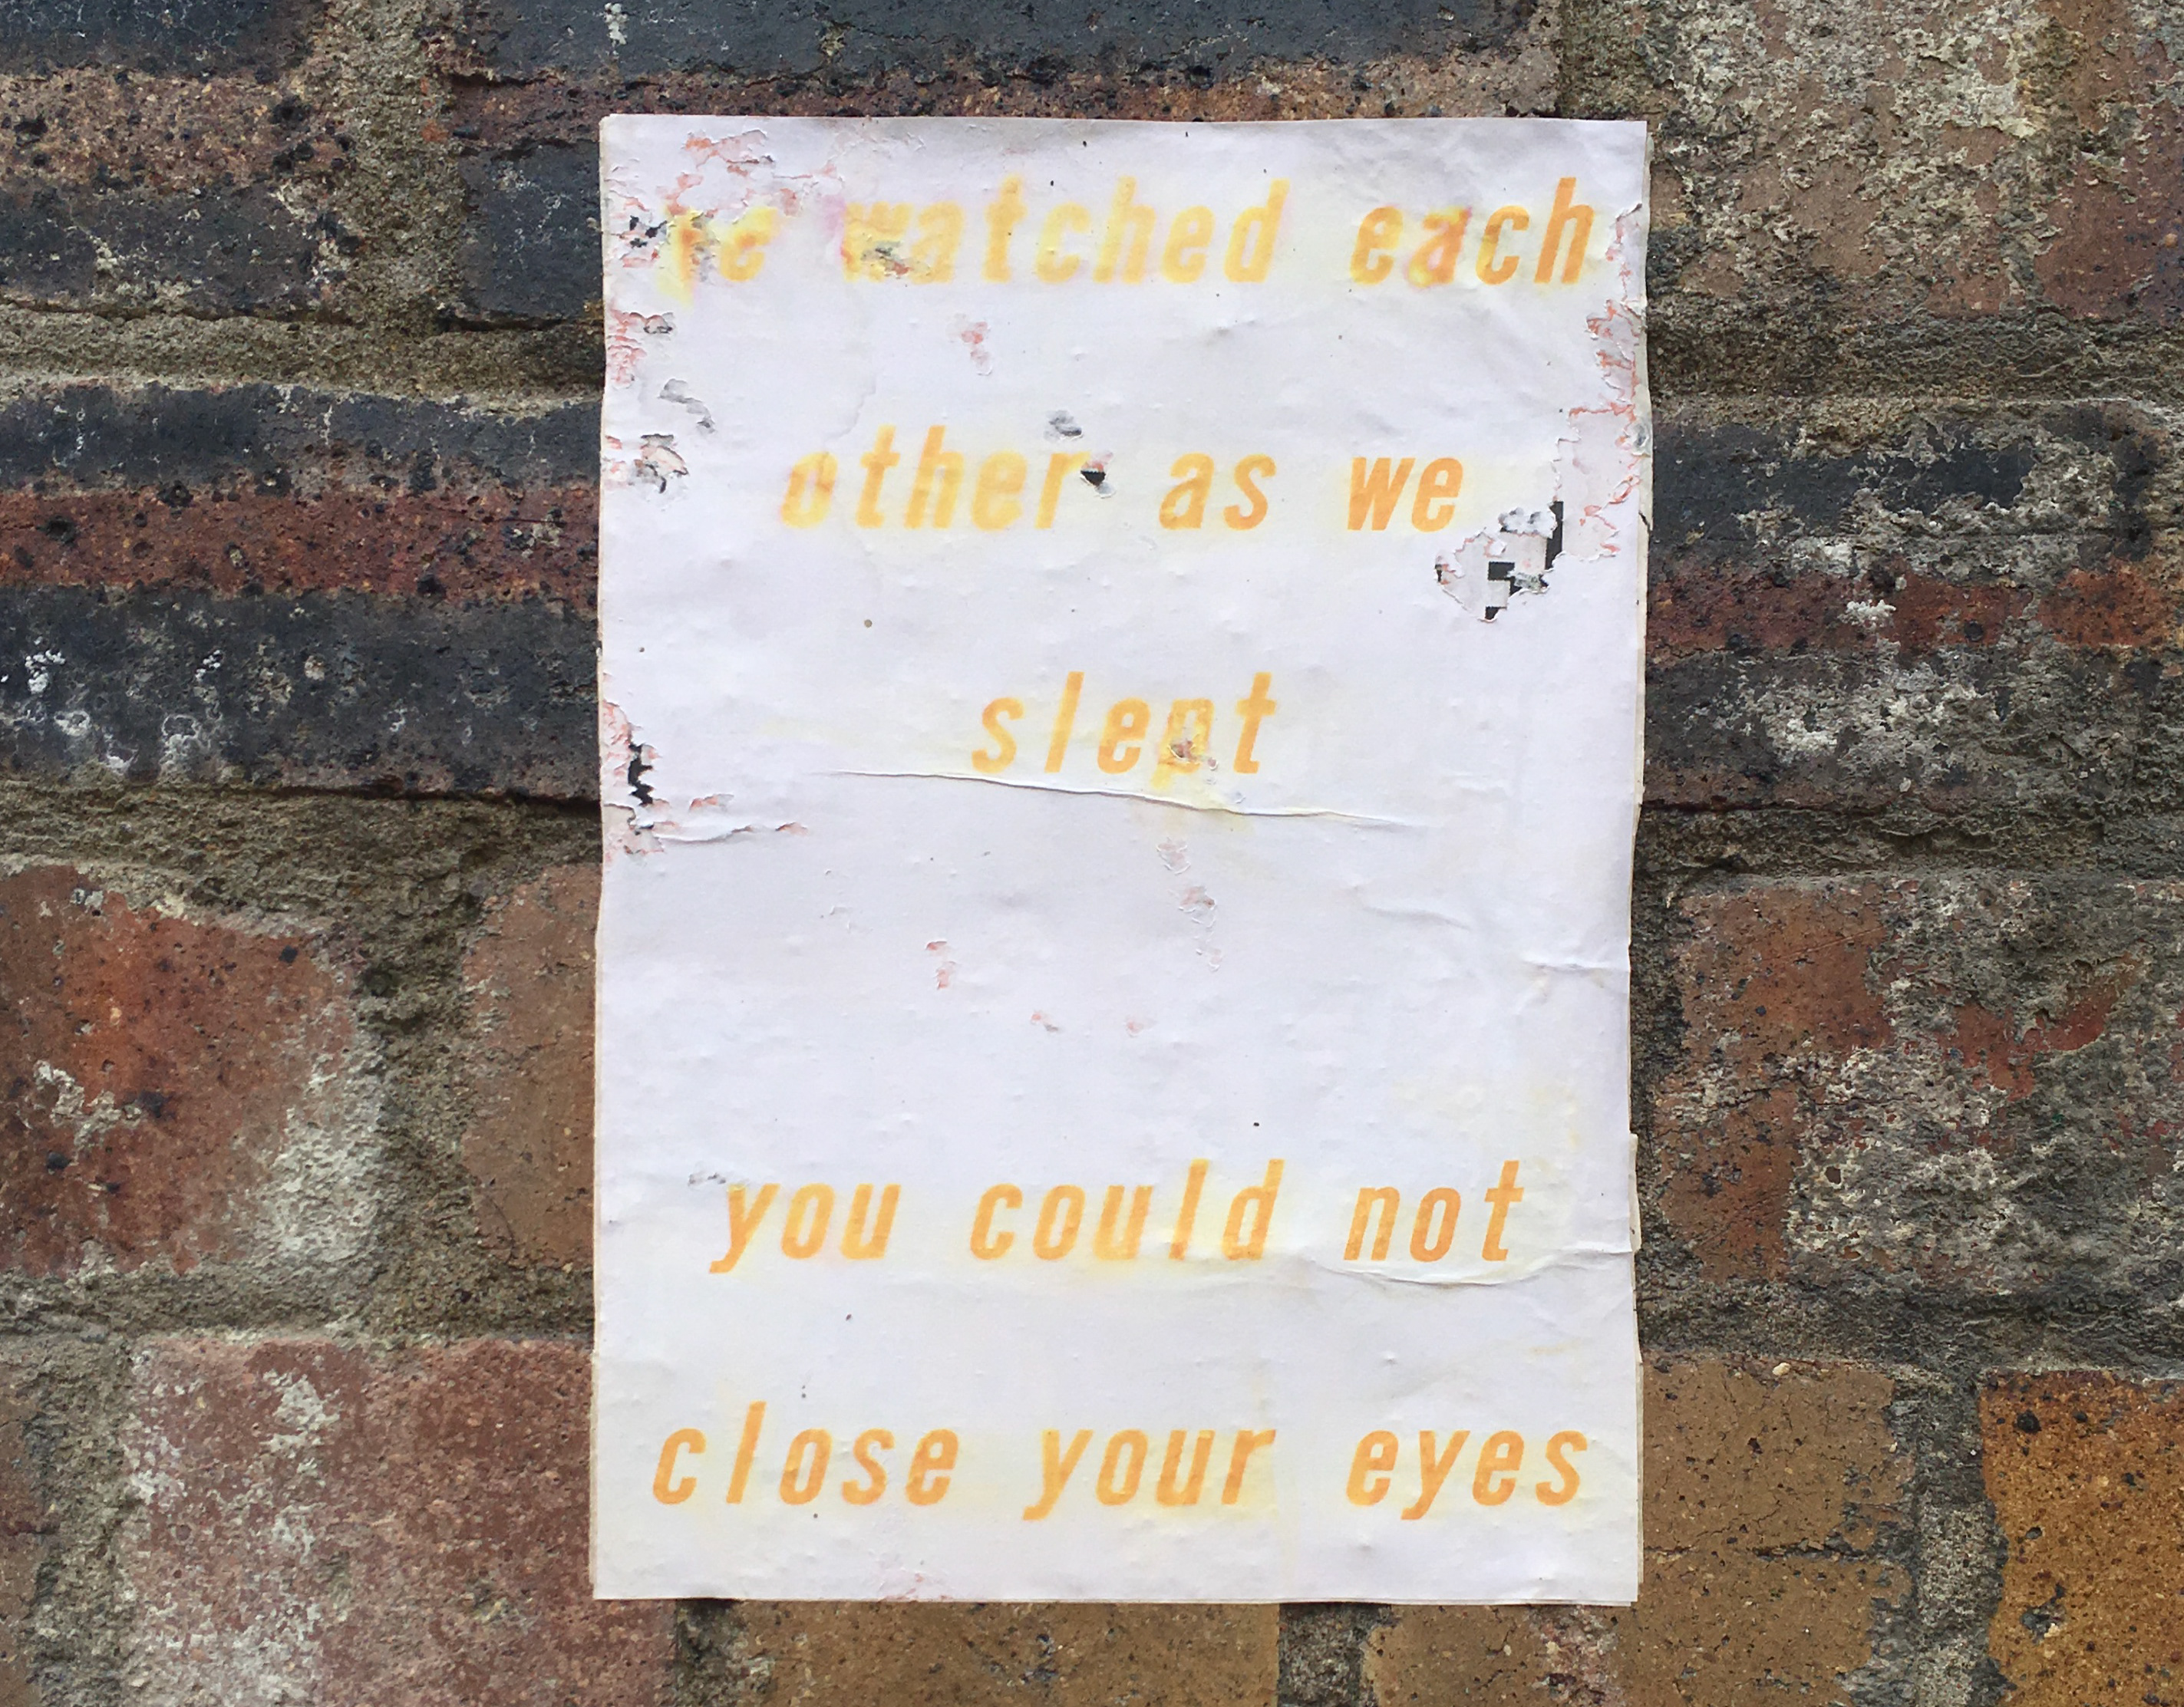 we watched each
other as we
slept
you could not
close your eyes